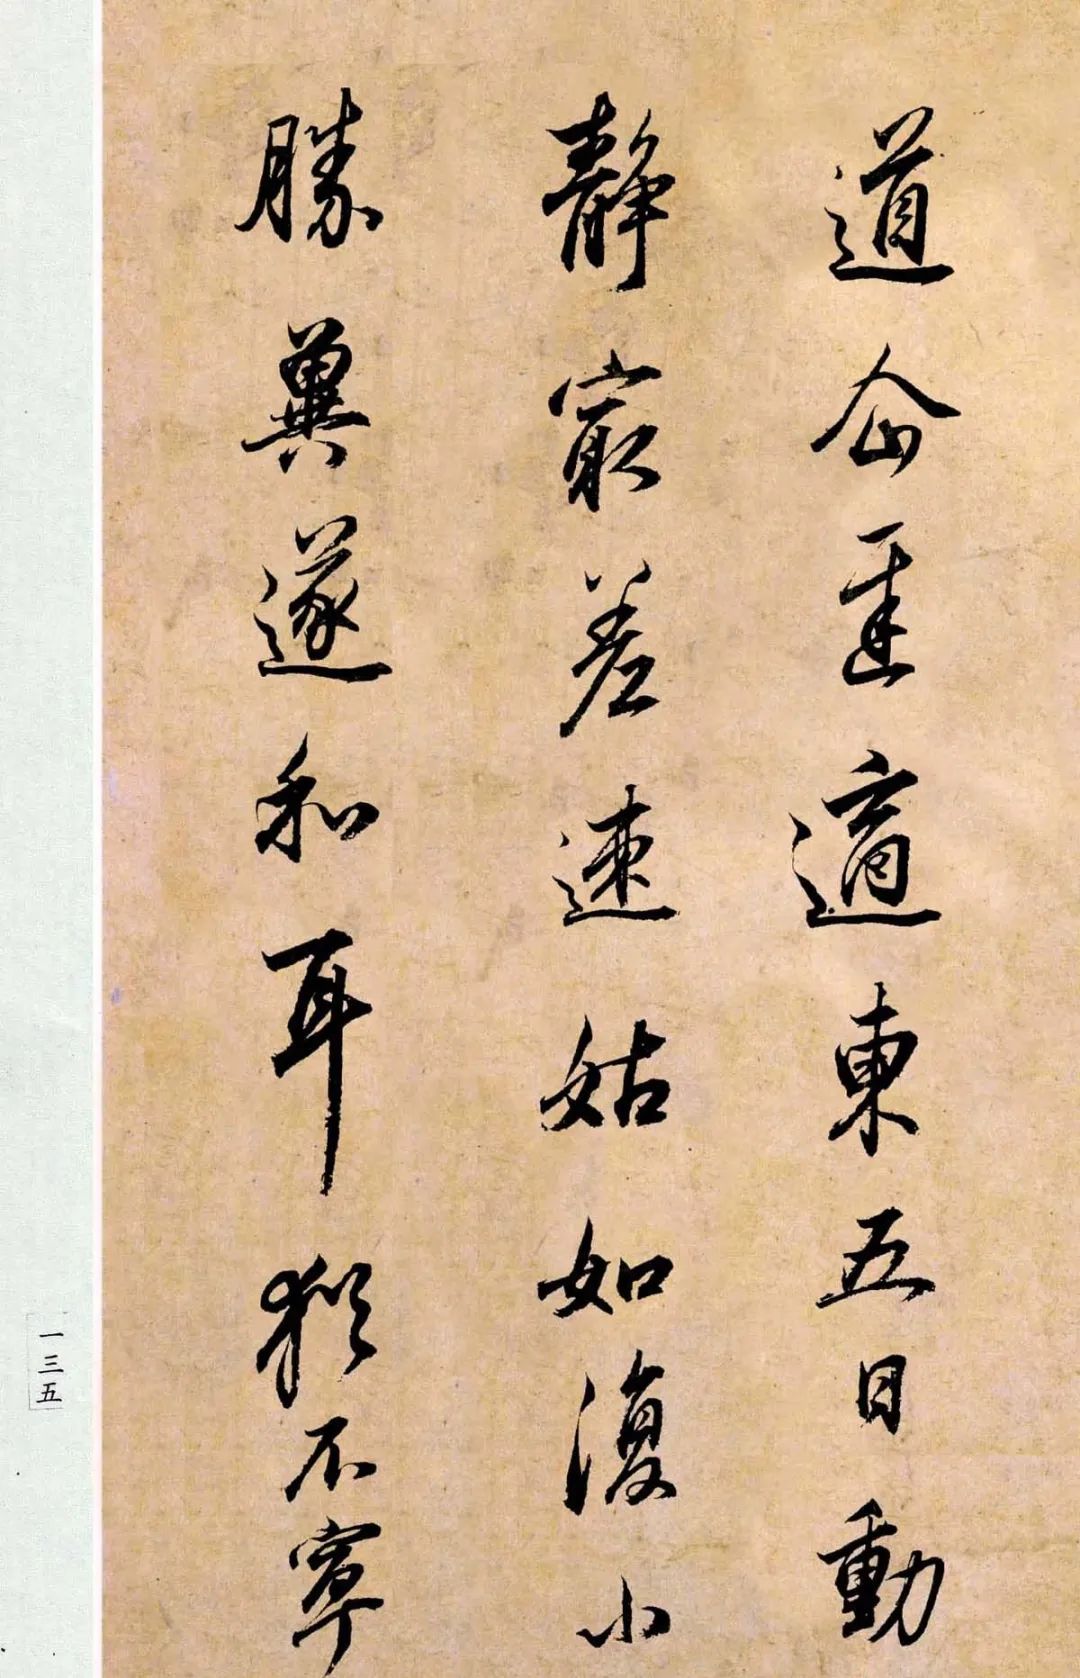 道企遲適東五日動
靜寂差速姑如復小
勝冀遂和耳猶不寧
一三五